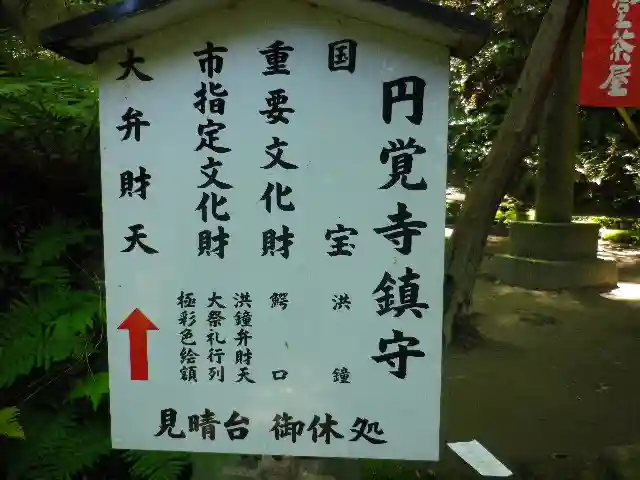 円覚寺鎮守
国宝 洪鐘
重要文化財 鰐口
市指定文化財 洪鐘弁財天
大祭礼行列
極彩色絵額
大弁財天
見晴台 御休処
茶屋